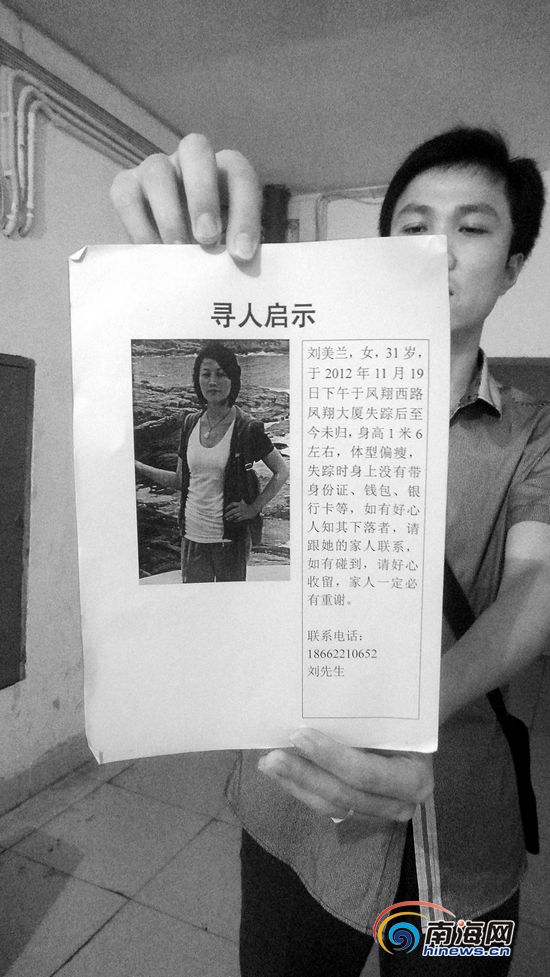 寻人启示
刘美兰，女，31岁，
于2012年11月19
日下午于凤翔西路
凤翔大厦失踪后至
今未归，身高1米6
左右，体型偏瘦，
失踪时身上没有带
身份证、钱包、银
行卡等，如有好心
人知其下落者，请
跟她的家人联系，
如有碰到，请好心
收留，家人一定必
有重谢。
联系电话：
18662210652
刘先生
南海网
hinews.cn